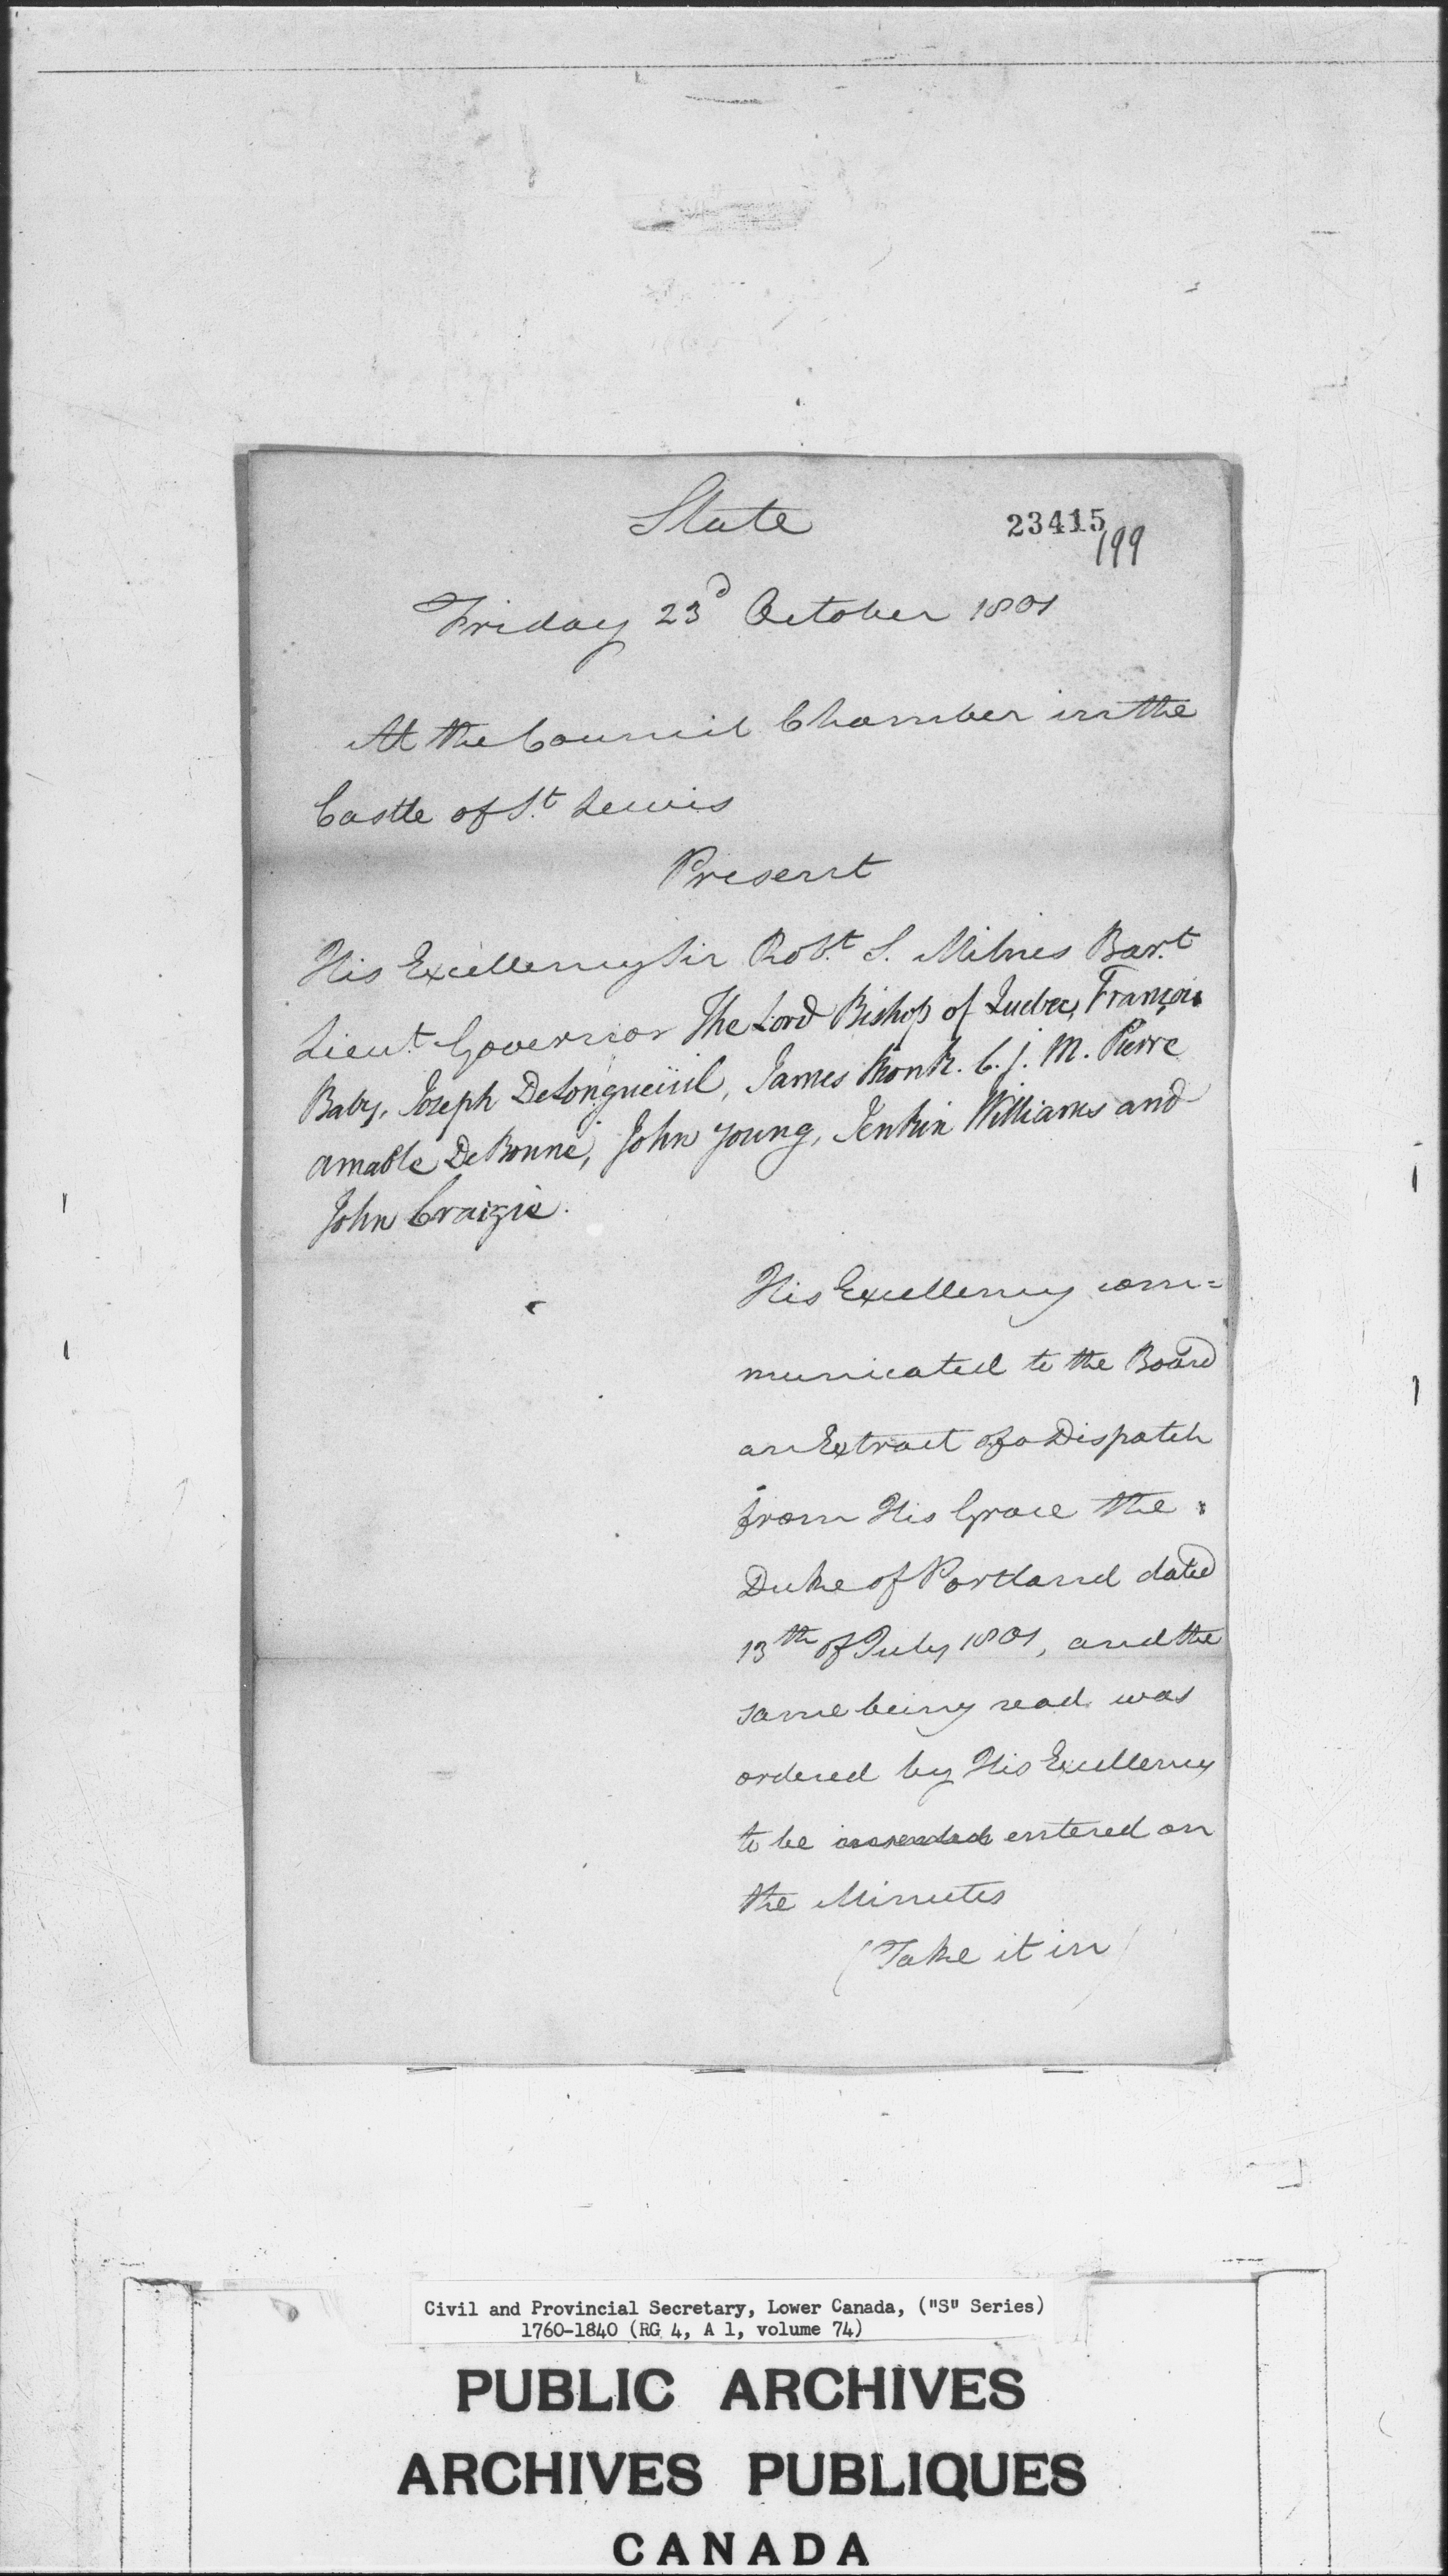 State
23415
199
Friday 23d October 1801
At the Council Chamber in the
Castle of St. Lewis
Present
His Excellency Sir Robt. S. Milnes Bart.
Lieut. Governor The Lord Bishop of Quebec, François
Baby, Joseph DeLongueüil, James Monk. C. J. M. Pierre
amable DeBonne, John Young, Jenkin Williams and
John Craigie.
His Excellency com=
municated to the Board
an Extract of a Dispatch
from His Grace the
Duke of Portland dated
13th of July 1801, and the
same being read was
ordered by His Excellency
to be entered on
the Minutes
(Take it in)
Civil and Provincial Secretary, Lower Canada, ("S" Series)
1760-1840 (RG 4, A 1, volume 74)
PUBLIC ARCHIVES
ARCHIVES PUBLIQUES
CANADA